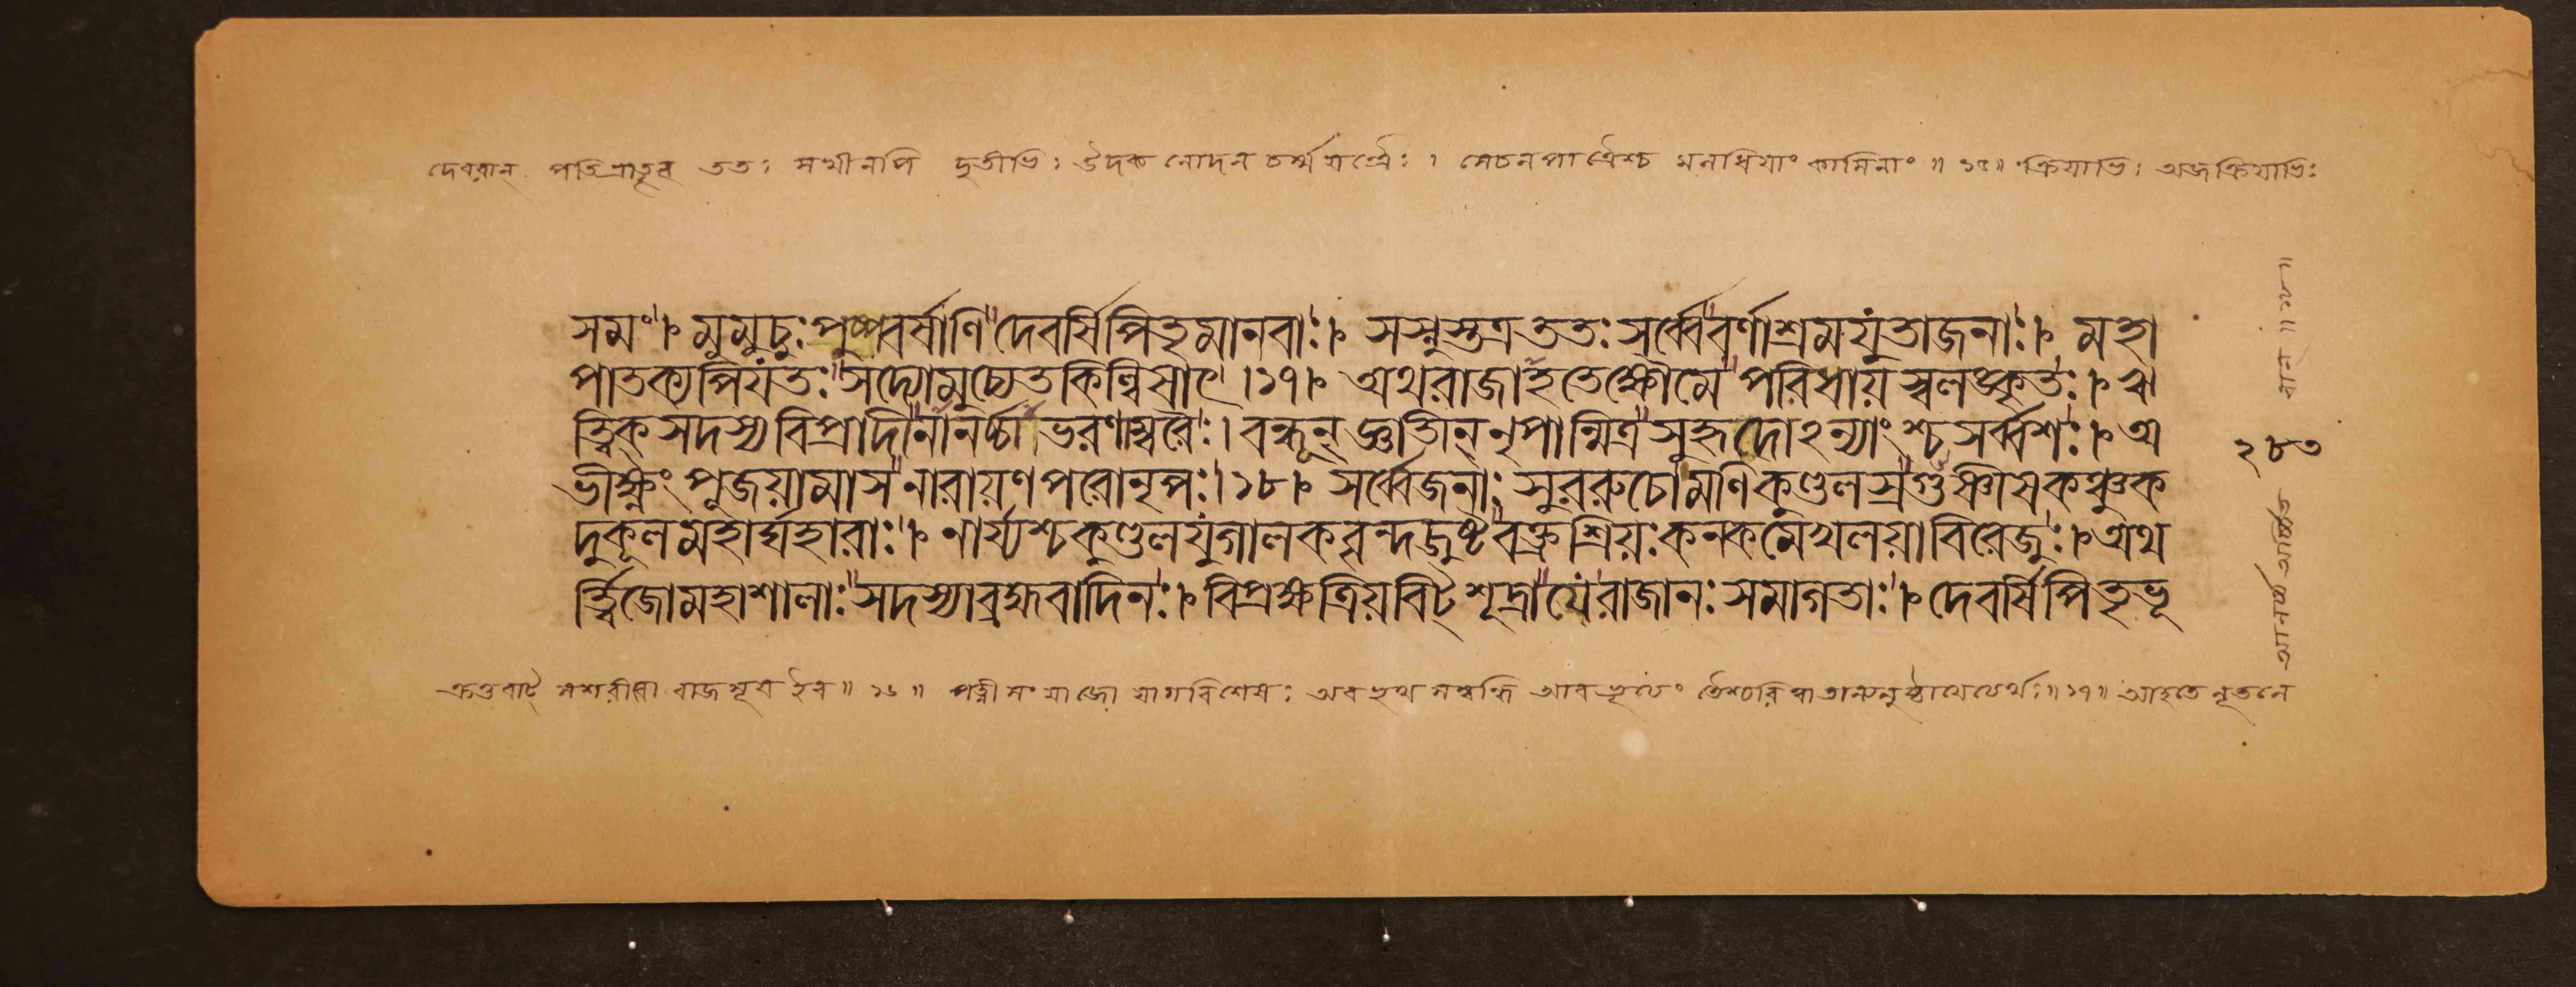 দেবরান্ পতিভ্রাতৄন্ ততঃ সখীনপি দৃতীভিঃ উদক নোদন চর্ম্ম যন্ত্রৈঃ । সেচনপাত্রৈশ্চ মনধিয়াং কামিনাং ॥ ১৫॥ ক্রিয়াভিঃ অঙ্গক্রিয়াভিঃ
সমং।৮ মুমুচুঃপুষ্পবর্ষাণি দেবর্ষিপ্পিতৃমানবাঃ।৮ সস্নুস্তত্রততঃসর্ব্বেবর্ণাশ্রমযুতাজনাঃ।৮ মহা
পাতক্যপ্পিযতঃ সদ্যোমুচ্যেতকিল্বিষাৎ।১৭।৮ অথরাজাহতেক্ষৌমে পরিধায়স্বলঙ্কৃতঃ।৮ ঋ
ত্ত্বিক্সদস্যবিপ্রাদীনানর্চ্চাভরণাম্বরৈঃ।বন্ধূন্জ্ঞাতীন্নৃপান্মিত্রসুহৃদোঽন্যাংশ্চসর্ব্বশঃ।৮অ
ভীক্ষ্ণং পূজয়ামাস নারায়ণপরোনৃপ্পঃ।১৮।৮ সর্ব্বেজনাঃ সুররুচোমণিকুণ্ডলস্রগুষ্ণীষকঞ্চুক
দুকূলমহার্ঘ্যহারাঃ।৮ নার্য্যশ্চকুণ্ডলযুগালকবৃন্দজুষ্টবক্ত্রশ্রিয়ঃকনকমেখলয়াবিরেজুঃ।৮অথ
র্ত্ত্বিজোমহাশালাঃ সদস্যাব্রহ্মবাদিনঃ।৮ বিপ্রক্ষত্রিয়বিট্শূদ্রাযেরাজানঃসমাগতাঃ।৮দেবর্ষিপ্পিতৃভূ
২৪৩
আনর্চ্চ আর্চ্চিত বান্ ॥ ১৮ ॥
ক্রতুরাট্ সশরীরো রাজসূয় ইব॥ ১৬ ॥ পত্নীসংযাজো যাগবিশেষঃ অবভৃথ সম্বন্ধি আবভৃথ্যং ॥১৭॥ আহতে নূতনে